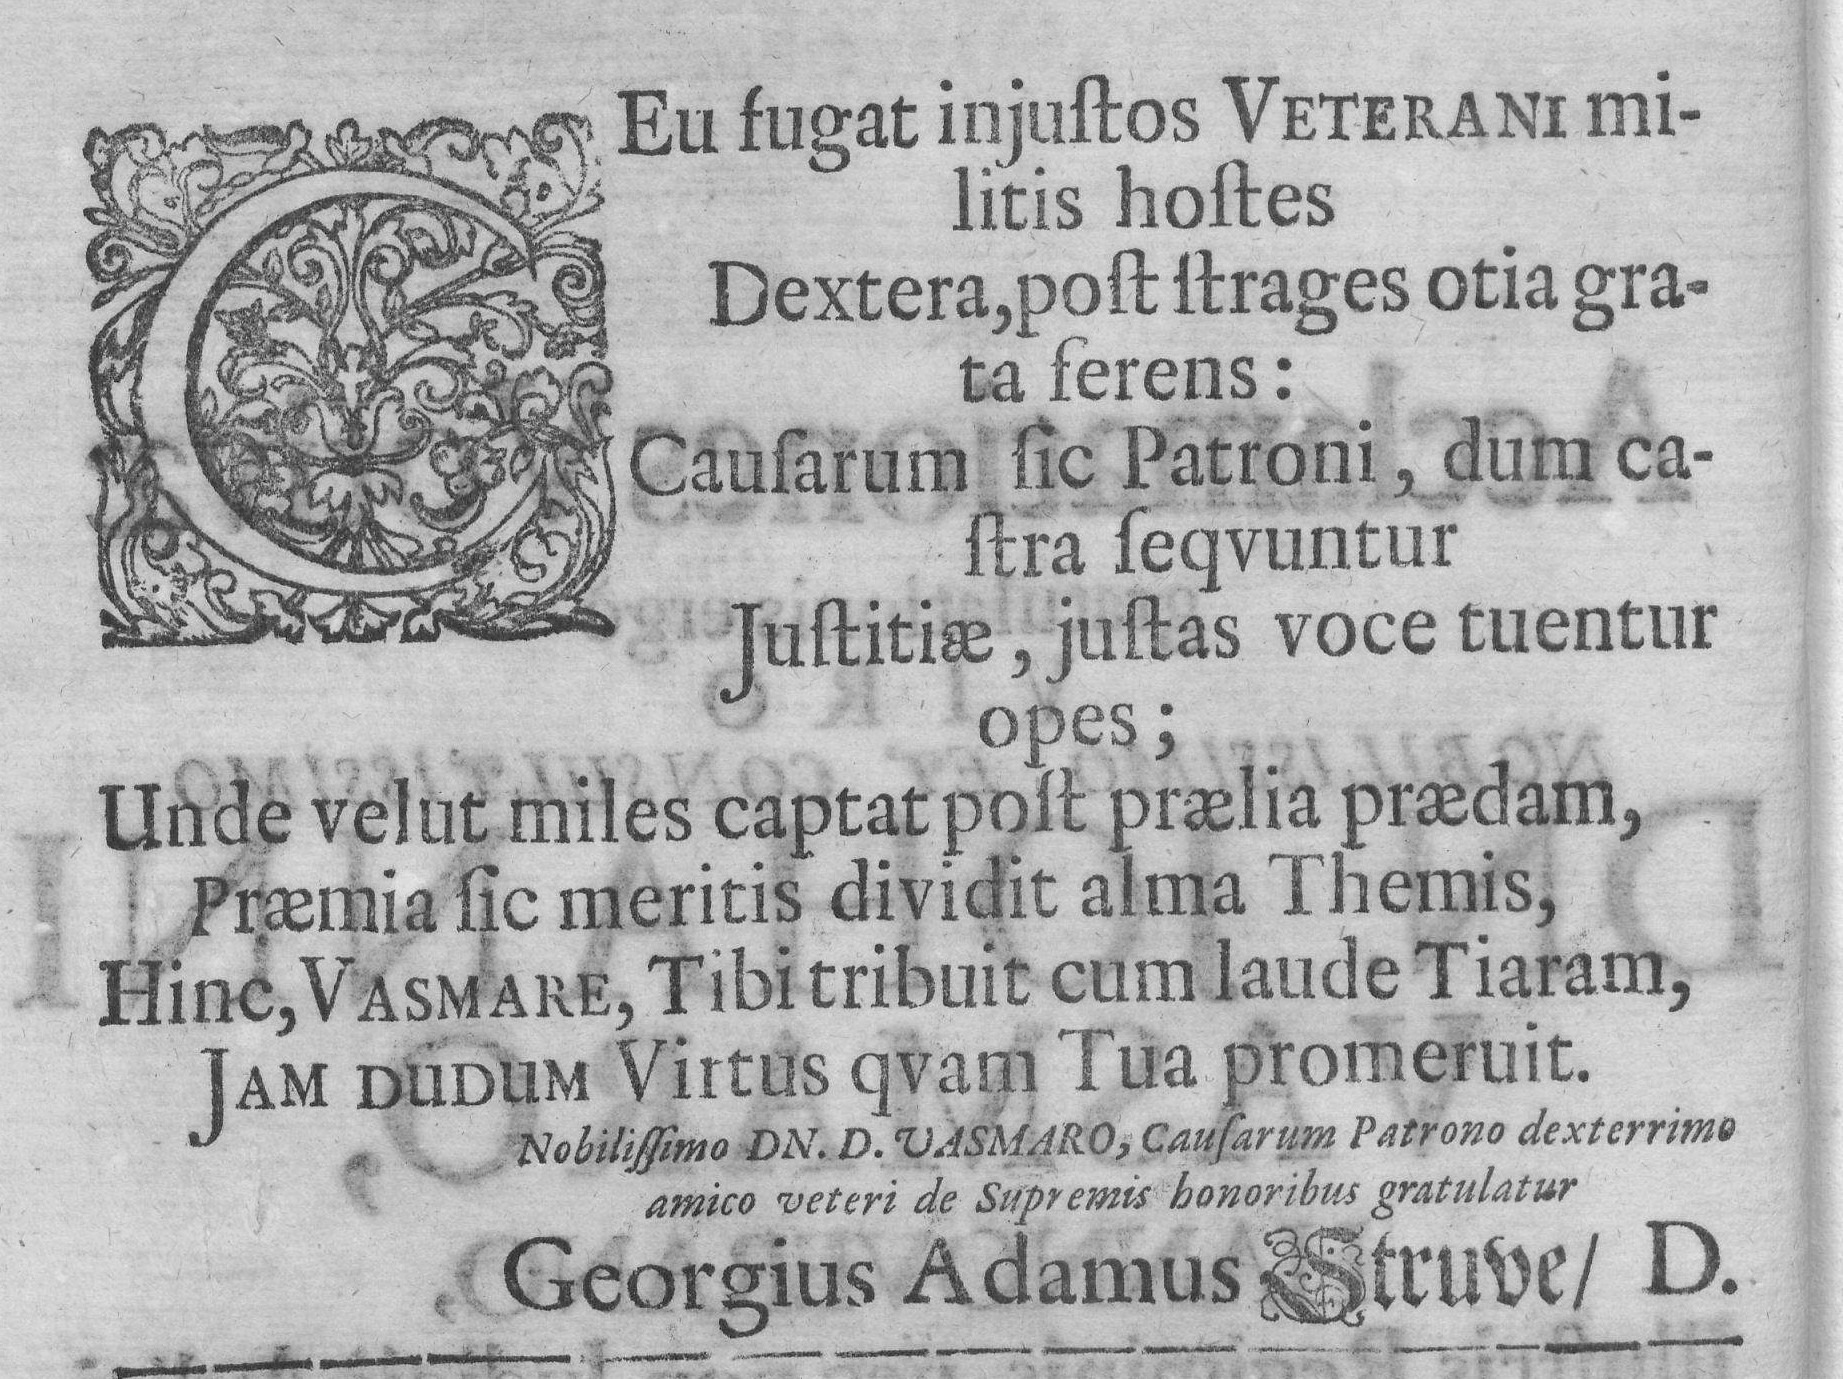 CEu fugat injuſtos VETERANI mi-
litis hoſtes
Dextera, poſt ſtrages otia gra-
ta ferens:
Cauſarum ſic Patroni, dum ca-
ſtra ſeqvuntur
Juſtitiæ, juſtas voce tuentur
opes;
Unde velut miles captat poſt prælia prædam,
Præmia ſic meritis dividit alma Themis,
Hinc, VASMARE, Tibi tribuit cum laude Tiaram,
JAM DUDUM Virtus qvam Tua promeruit.
Nobiliſſimo DN. D. VASMARO, Cauſarum Patrono dexterrimo
amico veteri de Supremis honoribus gratulatur
Georgius Adamus Struve/ D.